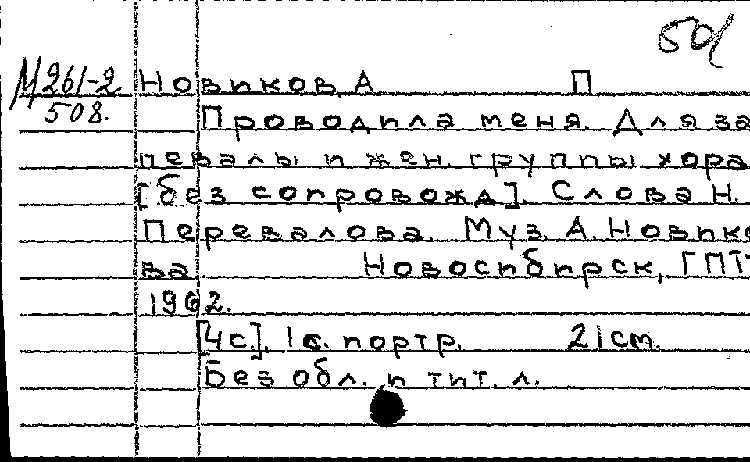 50
М 261-2 Новиков, А П
508. Проводила меня. Для за
певалы и жен. группы хора
[без сопровожд]. Слова Н.
Перевалова. Муз. А. Новико
ва Новосибирск,
1962.
[4с]. 1с. портр. 21 cm.
Без обл. и тит. л.